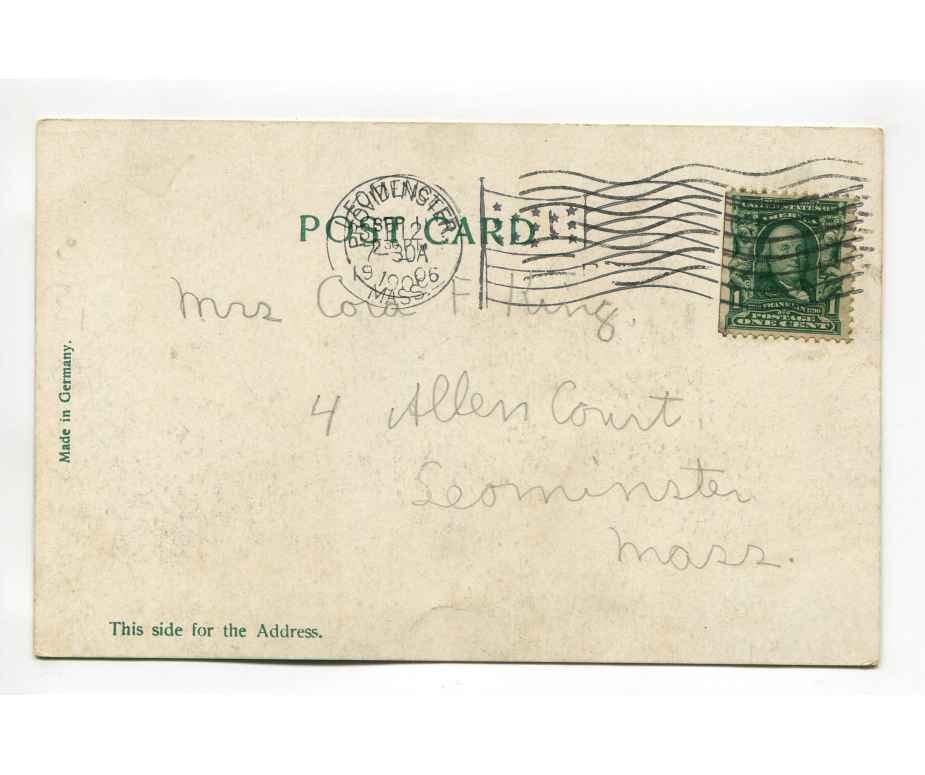 POST CARD
LEOMINSTER
SEP 12
7-30A
1906
MASS.
UNITED STATES OF
AMERICA
1 FRANKLIN 1
POSTAGE
ONE CENT
Mrs Cora F. King.
4 Allen Court.
Leominster
Mass.
Made in Germany.
This side for the Address.